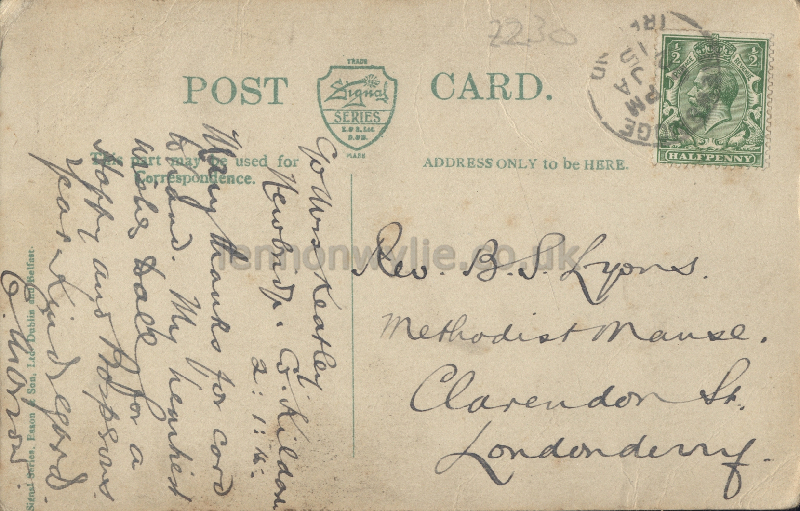 2230
POST CARD.
TRADE
Signal
SERIES
E & S. Ltd
D. & B.
MARK
½ ½
HALFPENNY
JA
PM
This part may be used for
Correspondence.
ADDRESS ONLY to be HERE.
C/o Mrs Keatley
Newbridge. Co. Kildare
2:1:14:
Many thanks for card
to hand. My heartiest
wishes
for a
Happy and Prosperous
year. Kind regard.
Rev. B. S. Lyons.
Methodist Manse.
Clarendon St.
Londonderry.
Signal Series, Eason & Son, Ltd. Dublin and Belfast.
lennonwylie.co.uk